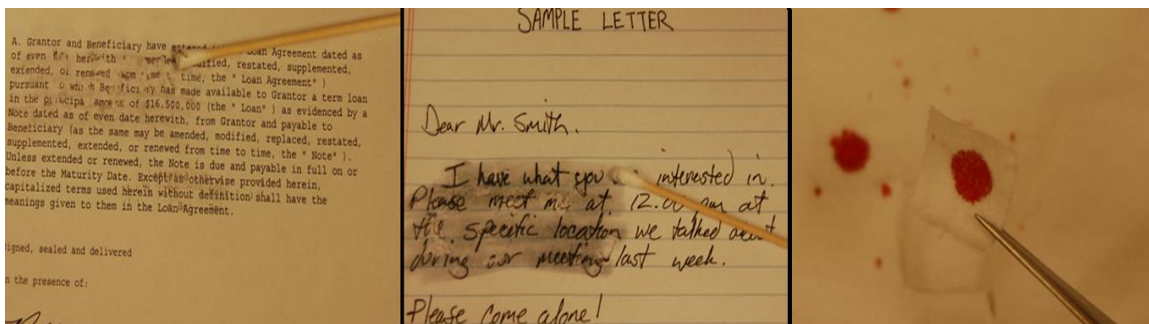 A. Grantor and Beneficiary have Loan Agreement dated as
of even modified, restated, supplemented,
extended, or renewed time, the " Loan Agreement" )
pursuant has made available to Grantor a term loan
in the of $16,500,000 (the " Loan" ) as evidenced by a
Note dated as of even date herewith, from Grantor and payable to
Beneficiary (as the same may be amended, modified, replaced, restated,
supplemented, extended, or renewed from time to time, the " Note" ).
Unless extended or renewed, the Note is due and payable in full on or
before the Maturity Date. Except as otherwise provided herein,
capitalized terms used herein without definition shall have the
meanings given to them in the Loan Agreement.
igned, sealed and delivered
n the presence of:
SAMPLE LETTER
Dear Mr. Smith.
I have what you interested in.
Please meet me at 12:00 pm at
the specific location we talked about
during our meeting last week.
Please come alone!